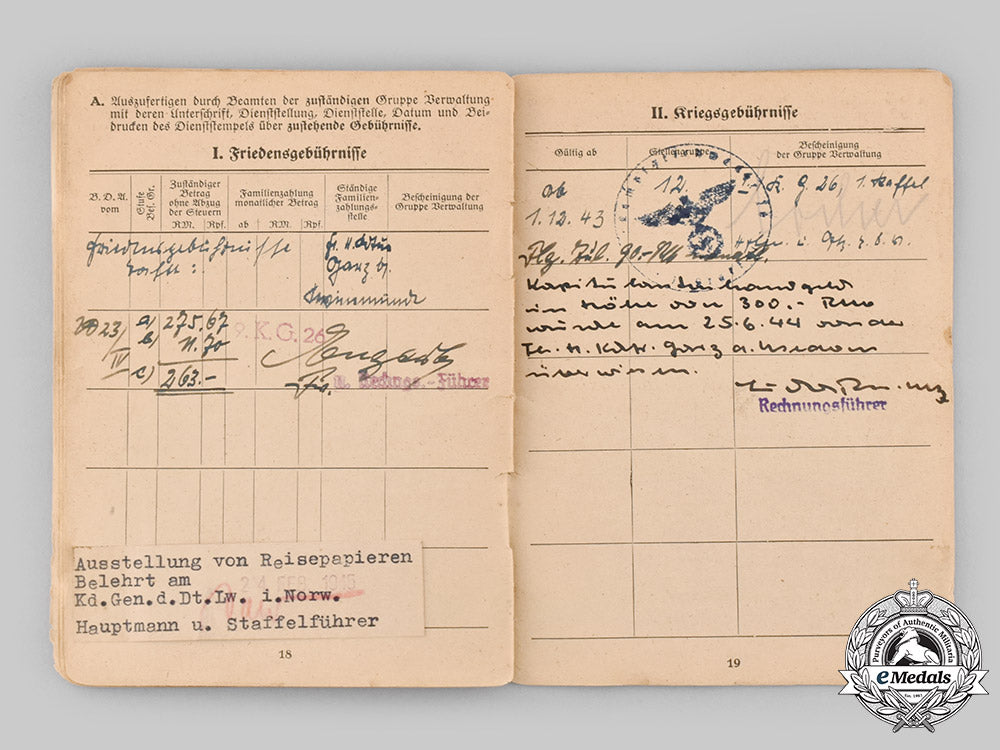 A. Auszufertigen durch Beamten der zuständigen Gruppe Verwaltung
mit deren Unterschrift, Dienststellung, Dienststelle, Datum und Bei-
drucken des Dienststempels über zustehende Gebührnisse.
I. Friedensgebührnisse
B. D. A. vom
Stufe Bes. Gr.
Zuständiger Betrag ohne Abzug der Steuern
Familienzahlung monatlicher Betrag
Ständige Familien-zahlungs-stelle
Bescheinigung der Gruppe Verwaltung
RM. Rpf. ab RM. Rpf.
Friedensgebührnisse
zahlt:
Garz a.
Swinemünde
23/IV
a) 275,67
b) 11.70
c) 263.-
9. K.G. 26
u. Rechngs.-Führer
Ausstellung von Reisepapieren
Belehrt am
24. FEB. 1945
Kd.Gen.d.Dt.Lw. i.Norw.
Hauptmann u. Staffelführer
18
II. Kriegsgebührnisse
Gültig ab
Stellengruppe
Bescheinigung der Gruppe Verwaltung
ab
1.12.43
12.
K. G. 26, 1. Staffel
Flg. Zul. 90.- RM monatl.
Kapitulantenhandgeld
in Höhe von 300.- RM
wurde am 25.6.44 von der
Fl. H. Kdtr. Garz a. Usedom
überwiesen.
Rechnungsführer
19
Purveyors of Authentic Militaria
eMedals